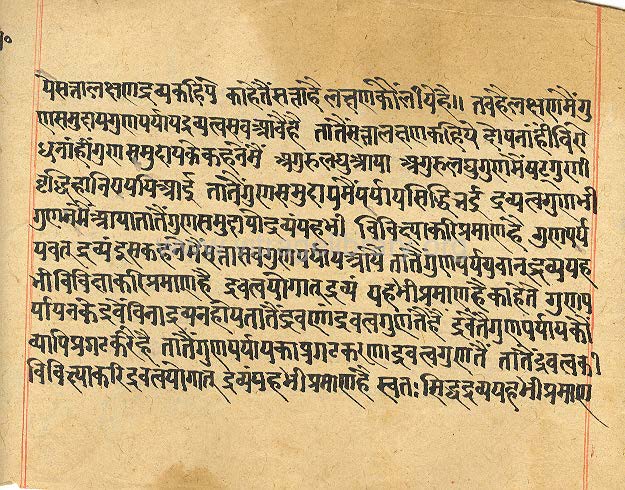 येसत्तालक्षणद्रव्यकहिये काहेतैंसत्ताहै लक्षणकौंलीयेहै॥ तबहैलक्षणमैंगु
णसमुदायगुणपर्यायद्रव्यत्वसबआवैहै तातैंसत्तालक्षणकहिये दोषनाहीविरो
धनांहींगुणसमुदायकेकहनेमैं अगुरुलघुआया अगुरुलघुगुणमैंषटगुणी
वृद्धिहानिपर्यायआई तातैंगुणसमुदायमेपर्यायसिद्धिभई द्रव्यत्वगुणभी
गुणनमैंआयातातैंगुणसमुदायोद्रव्यंयहभी विविक्ष्याकरिप्रमाणहै गुणपर्य
यवतद्रव्यंइसकहनेमैंसत्तासबगुणपर्यायआये तातैंगुणपर्ययवानद्रव्ययह
भीविविक्षाकरिप्रमाणहै द्रवत्वयोगातद्रव्यं यहभीप्रमाणहैकाहेतैं गुणप
र्यायनकेद्रवैंविनाद्रव्यनहोयतातैंद्रवणांद्रवत्वगुणतैंहै द्रवेतैंगुणपर्यायकौं
व्यापिप्रगटकरिहै तातैंगुणपर्यायकाप्रगटकरणाद्रवत्वगुणतैं तातैंद्रवत्वकी
विविक्ष्याकरिद्रवत्वयोगात द्रव्यंयहभीप्रमाणहै स्वतःसिद्धद्रव्ययहभीप्रमाण